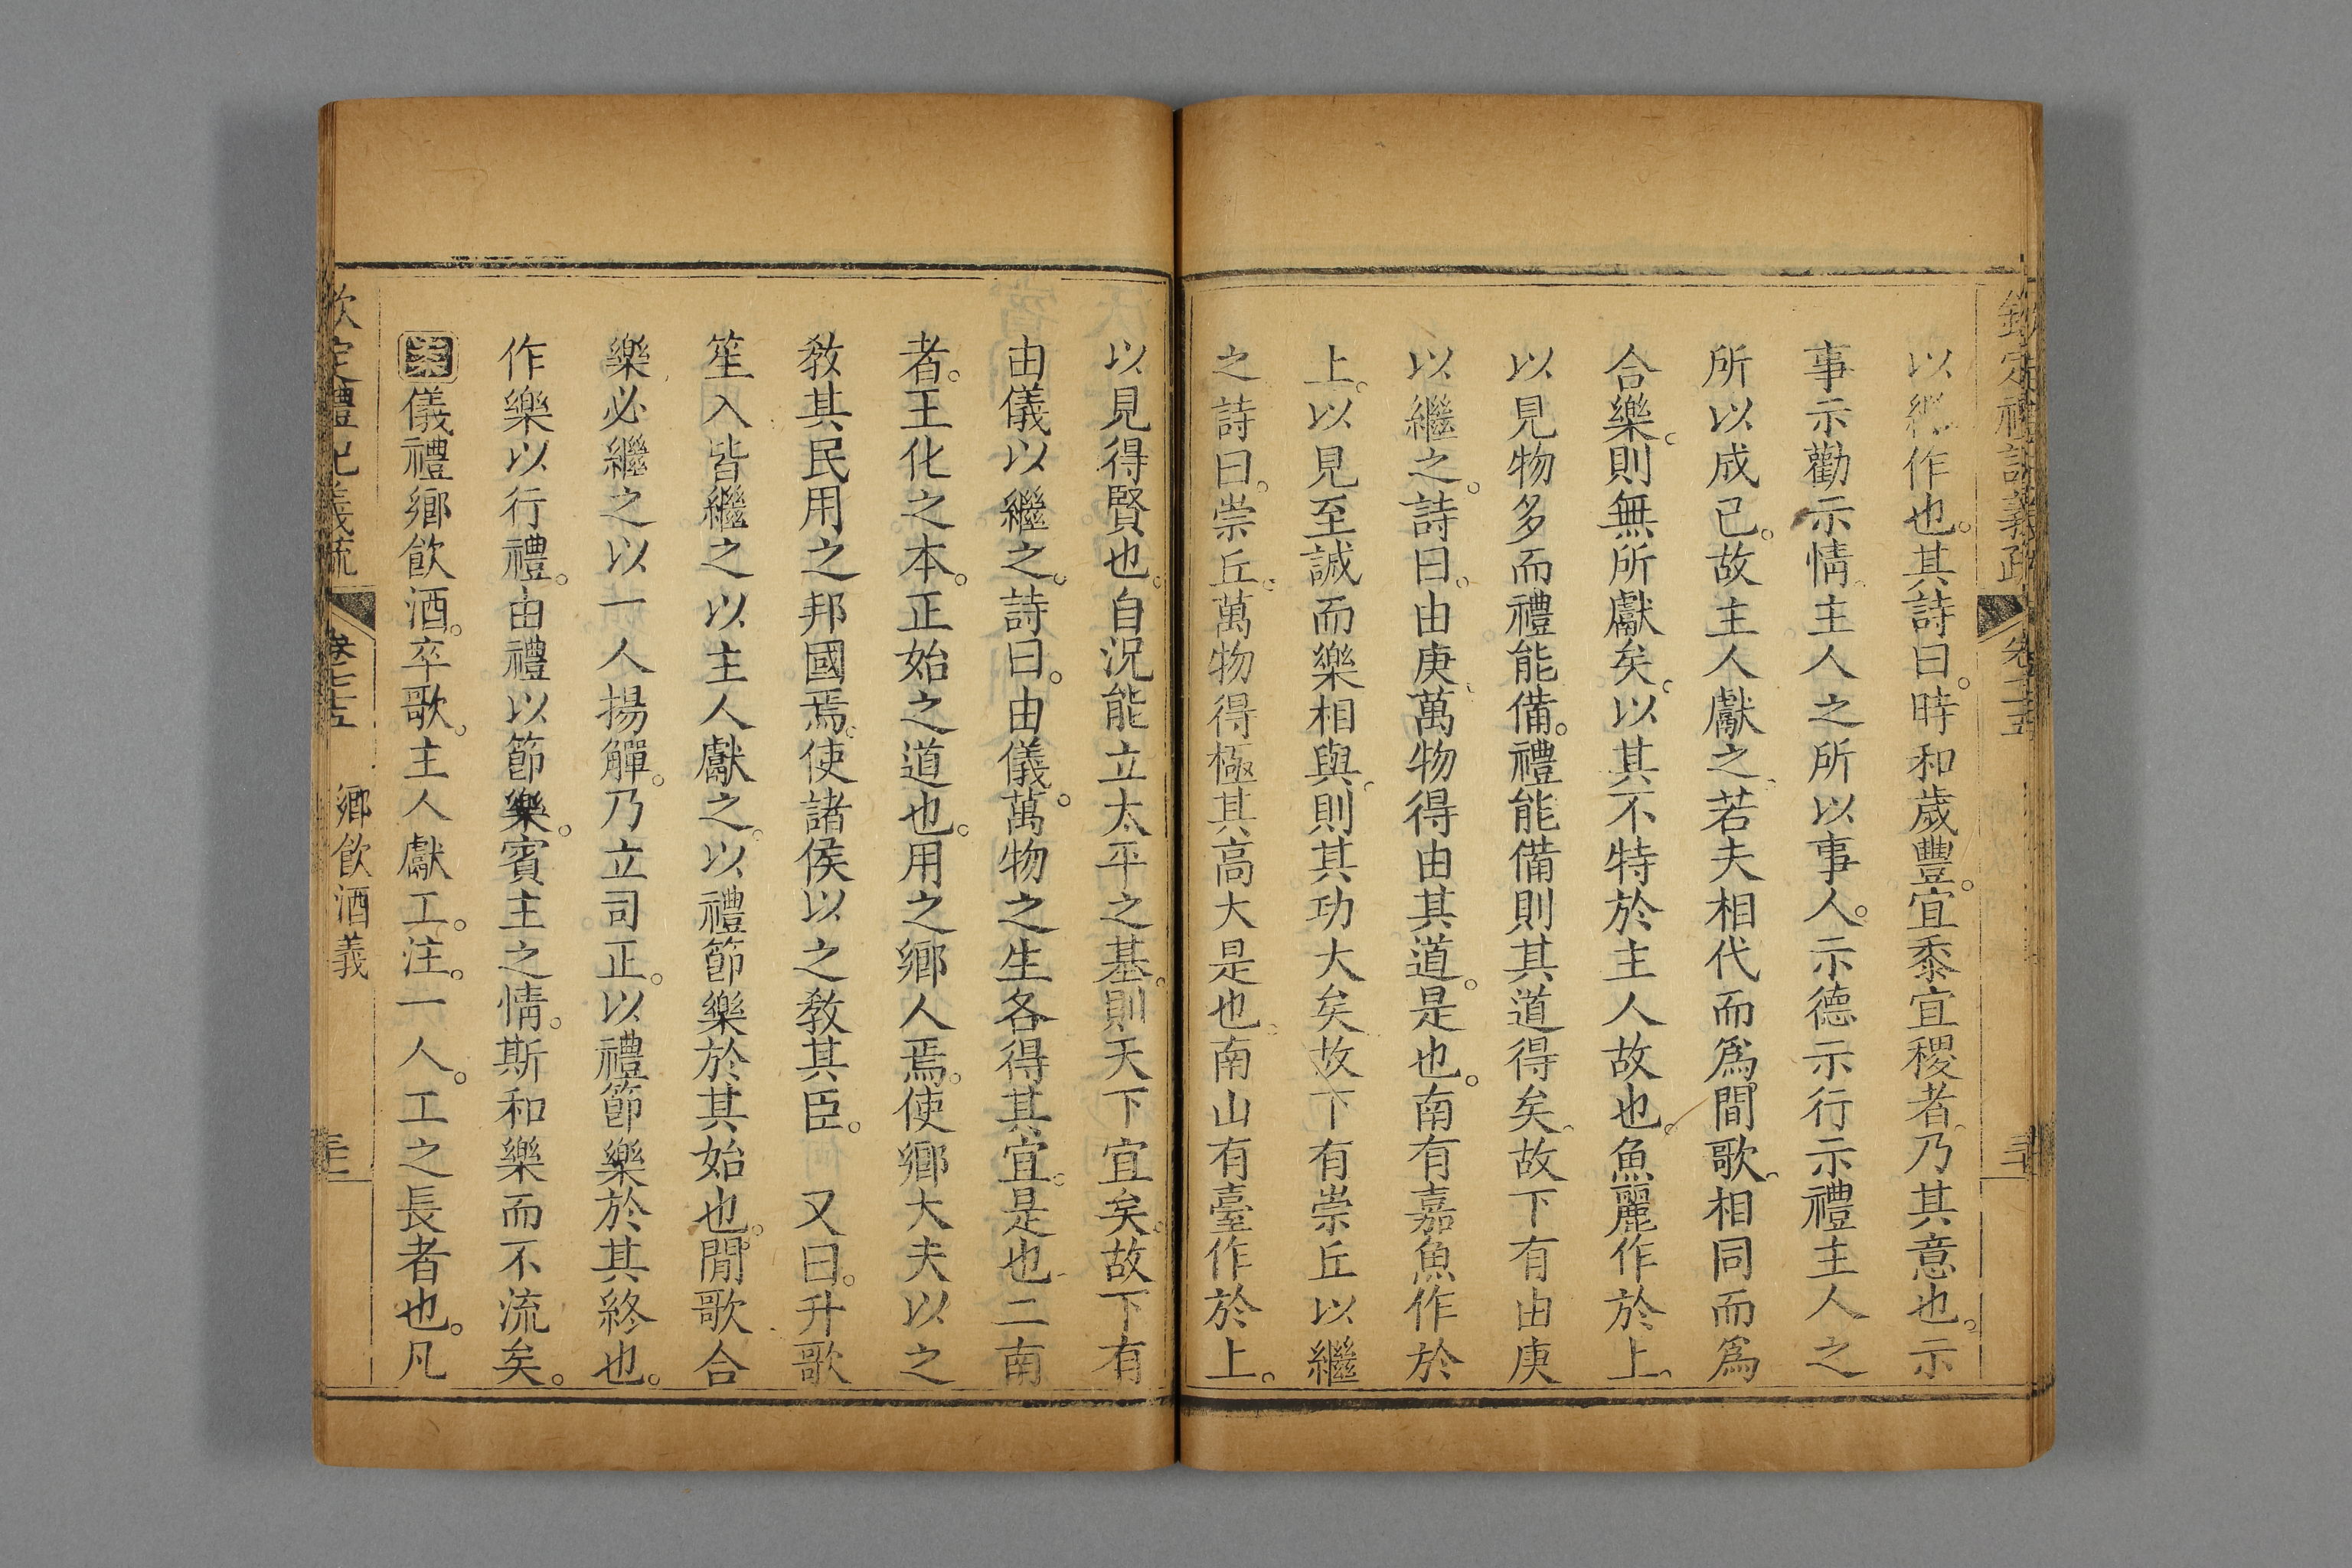 欽定禮記義疏 卷七十五 三十
以繼作也。其詩曰。時和歲豐。宜黍宜稷者。乃其意也。示
事示勸示情。主人之所以事人。示德示行示禮主人之
所以成已。故主人獻之。若夫相代而爲間歌。相同而爲
合樂。則無所獻矣。以其不特於主人故也。魚麗作於上。
以見物多而禮能備。禮能備則其道得矣。故下有由庚
以繼之。詩曰。由庚。萬物得由其道。是也。南有嘉魚作於
上。以見至誠而樂相與。則其功大矣故下有崇丘以繼
之詩曰。崇丘。萬物得極其高大是也。南山有臺作於上。
以見得賢也。自況能立太平之基。則天下宜矣。故下有
由儀以繼之。詩曰。由儀。萬物之生各得其宜。是也。二南
者。王化之本。正始之道也。用之鄉人焉。使鄉大夫以之
敎其民用之邦國焉。使諸侯以之敎其臣。 又曰。升歌
笙入皆繼之以主人獻之。以禮節樂於其始也。間歌合
樂必繼之以一人揚觶。乃立司正。以禮節樂於其終也。
作樂以行禮。由禮以節樂。賓主之情。斯和樂而不流矣。
案儀禮鄉飲酒。卒歌。主人獻工。注。一人。工之長者也。凡
欽定禮記義疏 卷七十五 鄉飲酒義